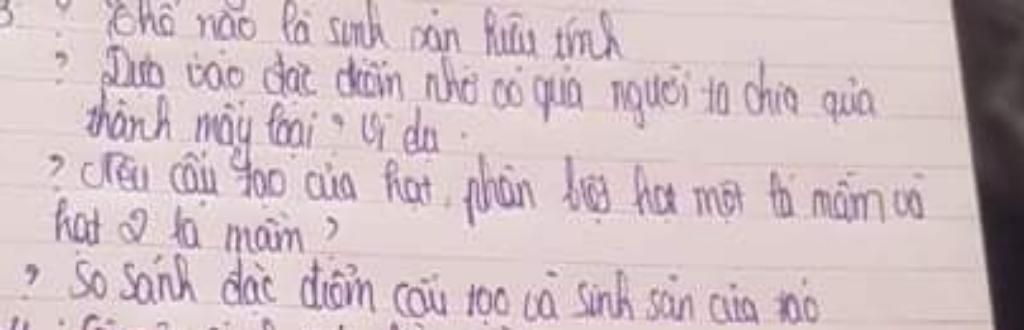 ? Thế nào là sinh sản hữu tính
? Dựa vào đặc điểm nào có quả người ta chia quả
thành mấy loại? Ví dụ.
? Nêu cấu tạo của hạt, phân biệt hạt một lá mầm và
hạt 2 lá mầm?
? So sánh đặc điểm cấu tạo và sinh sản của tảo